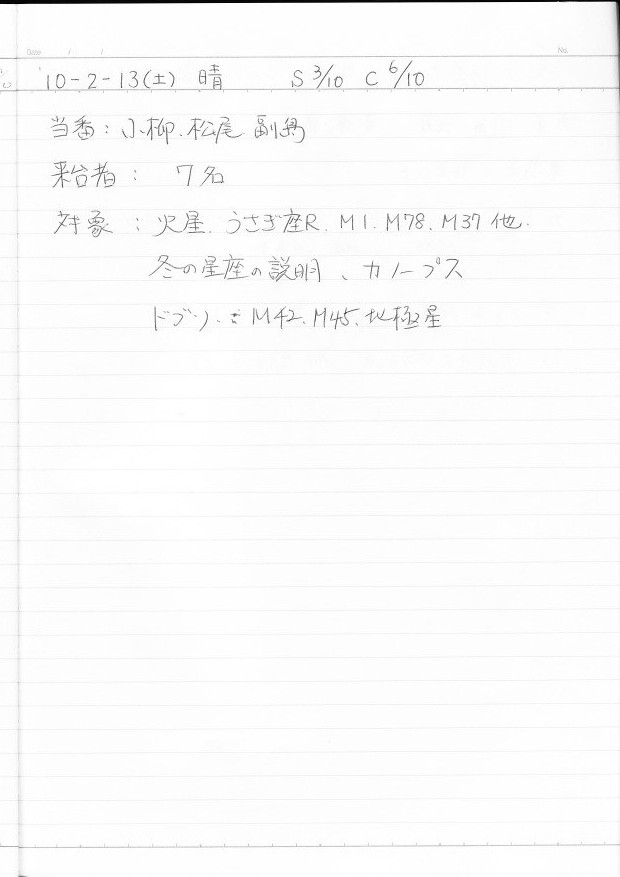 Date / /
No.
'10-2-13(土) 晴 S 3/10 C 6/10
当番: 小柳.松尾 副島
来台者: 7名
対象: 火星.うさぎ座R. M1. M78. M37 他.
冬の星座の説明、カノープス
ドブソ M42. M45. 北極星